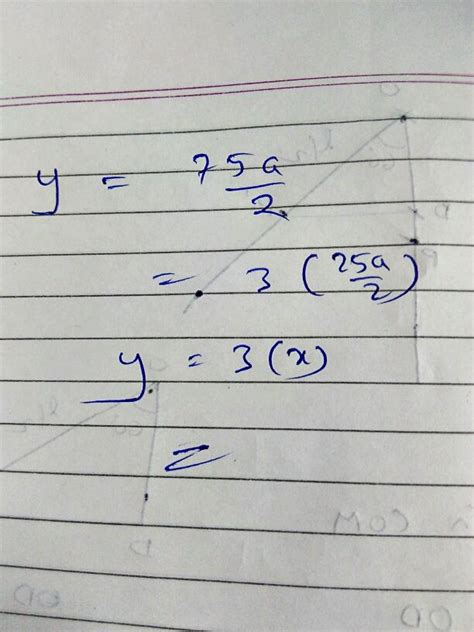 y = 75a/2
= 3 (25a/2)
y = 3(x)